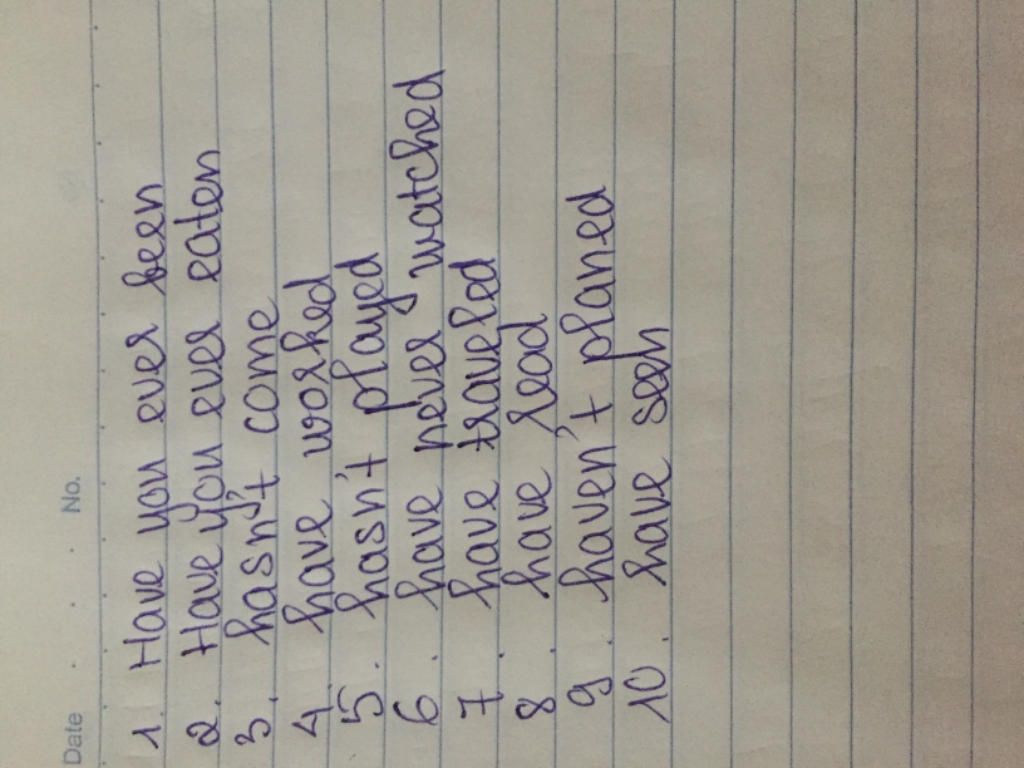 Date . . No.
1. Have you ever been
2. Have you ever eaten
3. hasn't come
4. have worked
5. hasn't played
6. have never watched
7. have traveled
8. have read
9. haven't planed
10. have seen